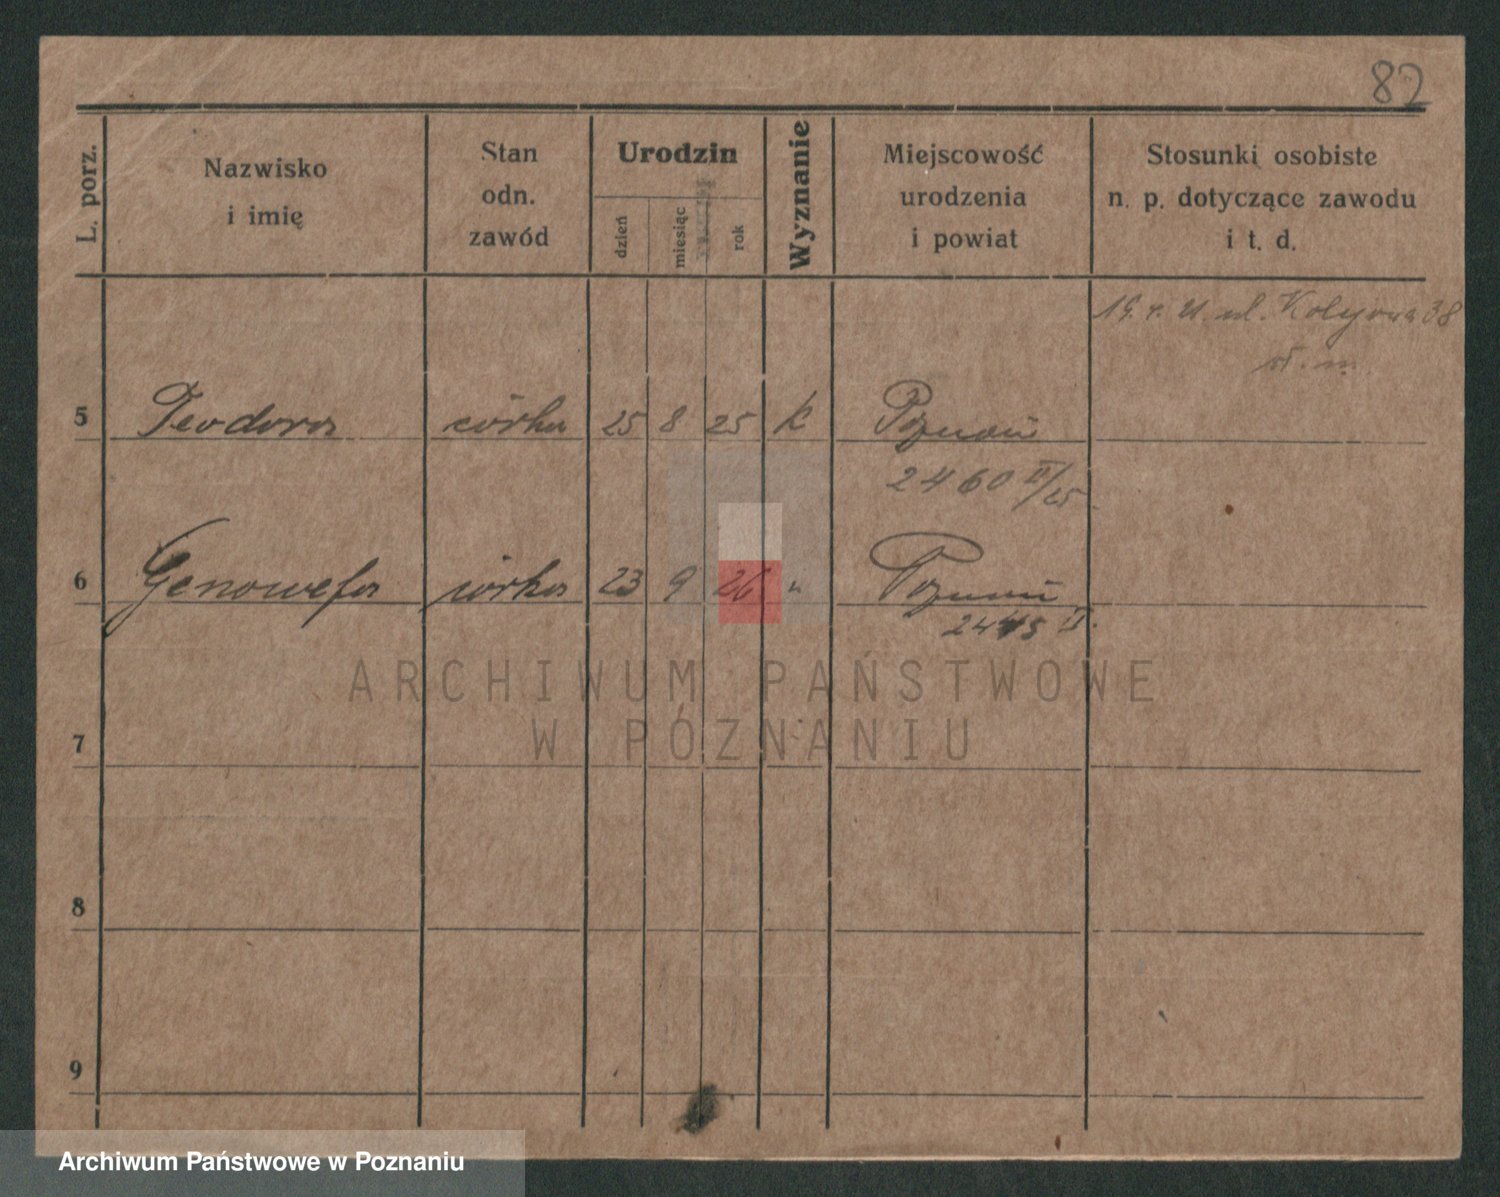 82
L. porz.
Nazwisko
i imię
Stan
odn.
zawód
Urodzin
dzień
miesiąc
rok
Wyznanie
Miejscowość
urodzenia
i powiat
Stosunki osobiste
n. p. dotyczące zawodu
i t. d.
ul. 38
5 Teodora córka 25 8 25 k Poznań
2460 II/25
6 Genowefa córka 23 9 26 " Poznań
2445 II.
ARCHIWUM PAŃSTWOWE
W POZNANIU
7
8
9
Archiwum Państwowe w Poznaniu